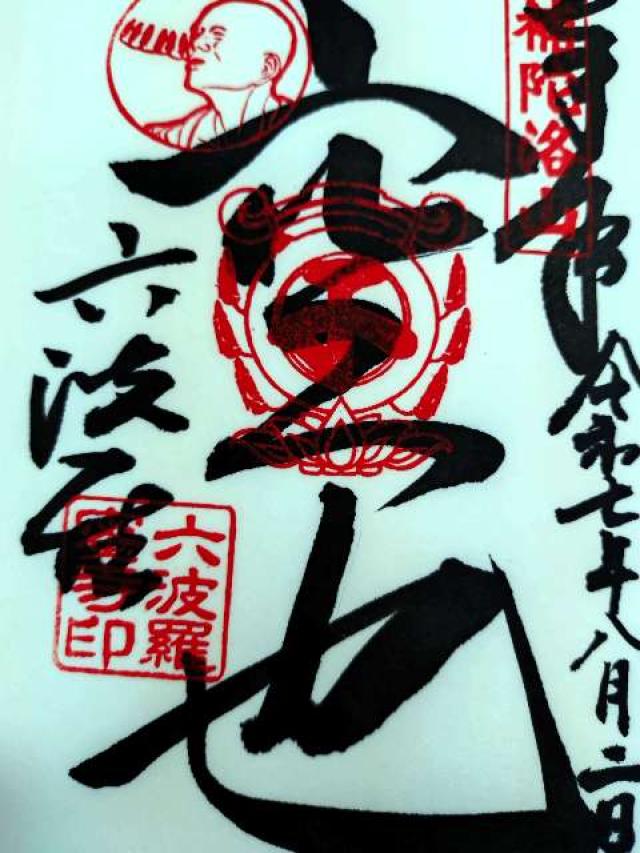 奉拝
令和七年八月二日
補陀洛山
空也
六波羅
六波羅
蜜寺印